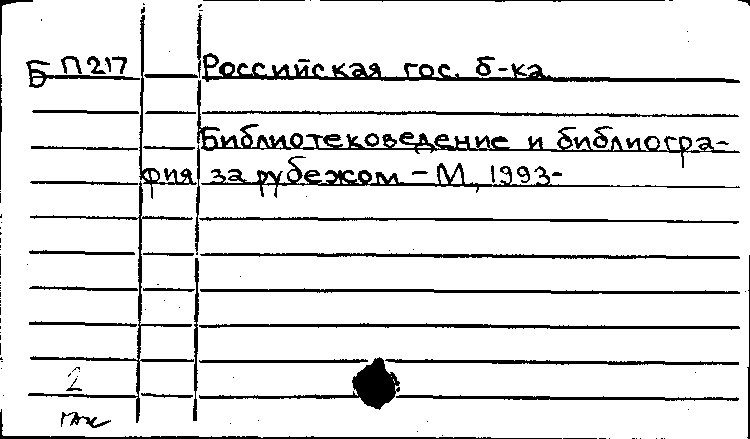 Б П217 Российская гос. б-ка
Библиотековедение и библиогра-
фия за рубежом - М., 1993-
2